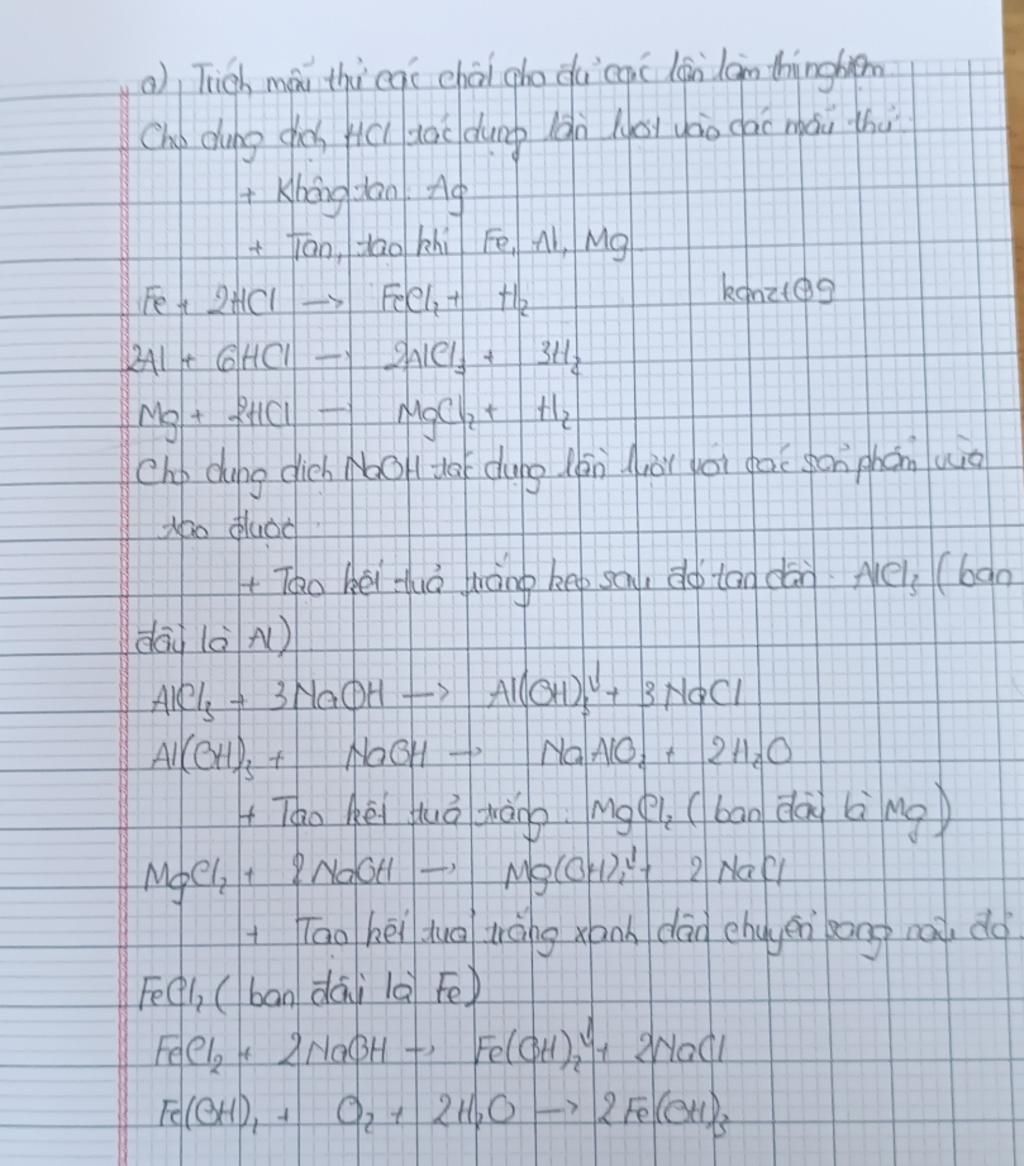 a) Trích mẫu thử các chất cho đủ các lần làm thí nghiệm
Cho dung dịch HCl tác dụng lần lượt vào các mẫu thử
+ Không tan: Ag
+ Tan, tạo khí Fe, Al, Mg
Fe + 2HCl → FeCl₂ + H₂
2Al + 6HCl → 2AlCl₃ + 3H₂
Mg + 2HCl → MgCl₂ + H₂
Cho dung dịch NaOH tác dụng lần lượt với các sản phẩm vừa
tạo được
+ Tạo kết tủa trắng keo sau đó tan dần: AlCl₃ (ban
đầu là Al)
AlCl₃ + 3NaOH → Al(OH)₃↓ + 3NaCl
Al(OH)₃ + NaOH → NaAlO₂ + 2H₂O
+ Tạo kết tủa trắng: MgCl₂ (ban đầu là Mg)
MgCl₂ + 2NaOH → Mg(OH)₂↓ + 2NaCl
+ Tạo kết tủa trắng xanh dần chuyển sang nâu đỏ
FeCl₂ (ban đầu là Fe)
FeCl₂ + 2NaOH → Fe(OH)₂↓ + 2NaCl
Fe(OH)₂ + O₂ + 2H₂O → 2Fe(OH)₃